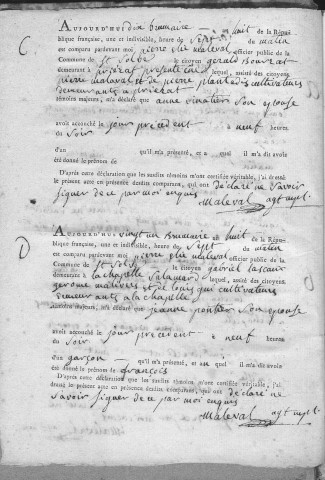 C
AUJOURD'HUI dix brumaire an huit de la Répu-
blique française, une et indivisible, heure de Sept du matin
est comparu pardevant moi pierre maleval officier public de la
Commune de St le citoyen gerald
demeurant à lequel, assisté des citoyens
pierre maleval et de pierre cultivateurs
demeurants a
témoins majeurs, m'a déclaré que anne Son epouse
avoit accouché le jour precedent à neuf heures
du Soir
d'un qu'il m'a présenté, et a quel il m'a dit avoir
été donné le prénom de
D'après cette déclaration que les susdits témoins m'ont certifiée véritable, j'ai dressé
le présent acte en présence desdits comparants, qui ont déclaré ne Savoir
Signer de ce par moi enquis
Maleval agt mpl.
D
AUJOURD'HUI vingt un Brumaire an huit de la Répu-
blique française, une et indivisible, heure de Sept du matin
est comparu pardevant moi pierre maleval officier public de la
Commune de St le citoyen gabriel
demeurant à la chapelle lequel, assisté des citoyens
gerome et de louis cultivateurs
demeurants a la chapelle
témoins majeurs, m'a déclaré que jeanne Son epouse
avoit accouché le jour precedent à neuf heures
du Soir
d'un garçon qu'il m'a présenté, et au quel il m'a dit avoir
été donné le prénom de françois
D'après cette déclaration que les susdits témoins m'ont certifiée véritable, j'ai
dressé le présent acte en présence desdits comparants, qui ont déclaré ne
Savoir Signer de ce par moi enquis
Maleval agt mpl.